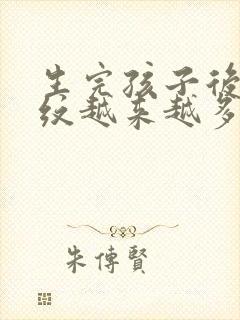 生完孩子後
纹越来越多
朱傳賢